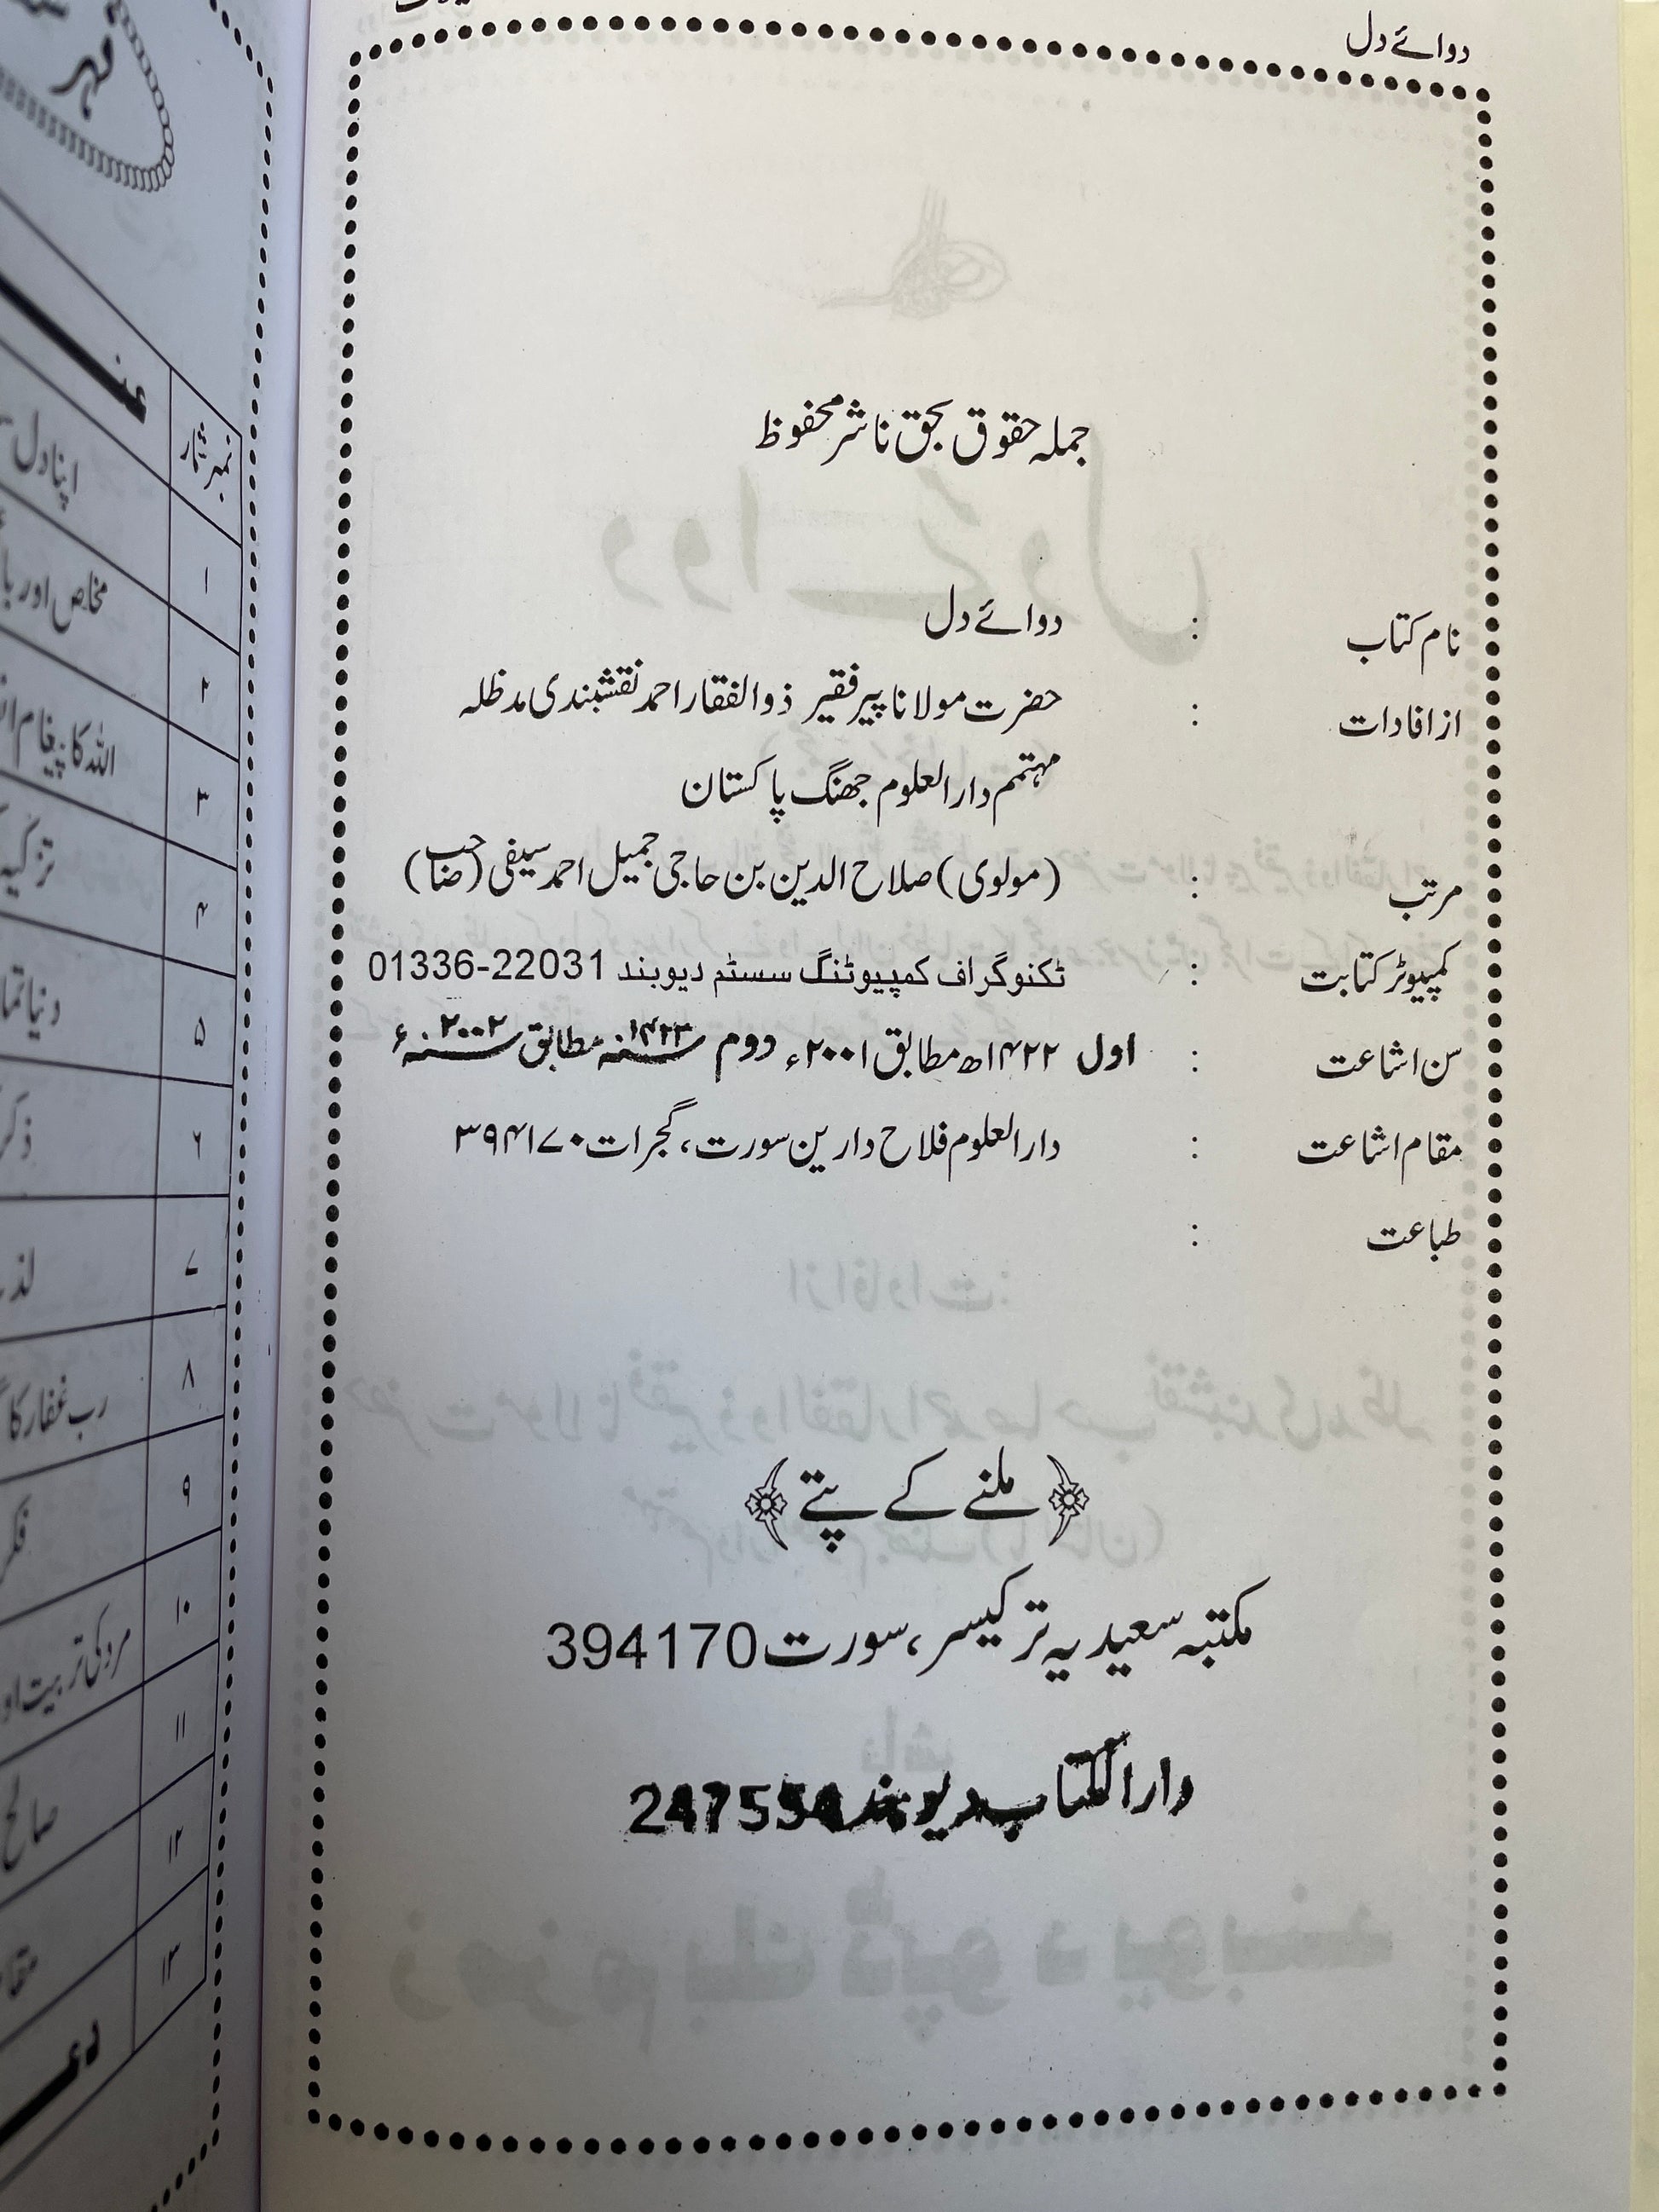 دوائے دل
جملہ حقوق بحق ناشر محفوظ
نام کتاب : دوائے دل
از افادات : حضرت مولانا پیر فقیر ذوالفقار احمد نقشبندی مدظلہ
مہتمم دارالعلوم جھنگ پاکستان
مرتب : (مولوی) صلاح الدین بن حاجی جمیل احمد سیفی (صاحب)
کمپیوٹر کتابت : ٹکنوگراف کمپیوٹنگ سسٹم دیوبند 01336-22031
سن اشاعت : اول ۱۴۲۲ھ مطابق ۲۰۰۱ء دوم ۱۴۲۳ھ مطابق ۲۰۰۲ء
مقام اشاعت : دارالعلوم فلاح دارین سورت، گجرات ۳۹۴۱۷۰
طباعت :
ملنے کے پتے
مکتبہ سعیدیہ ترکیسر، سورت 394170
دارالکتاب دیوبند 247554
نمبر شمار
۱ اپنا دل
۲ مخلص اور
۳ اللہ کا پیغام
۴
۵ دنیا
۶ ذکر
۷
۸ رب غفار کا
۹ فکر
۱۰ مرد کی تربیت
۱۱ صالح
۱۲
۱۳